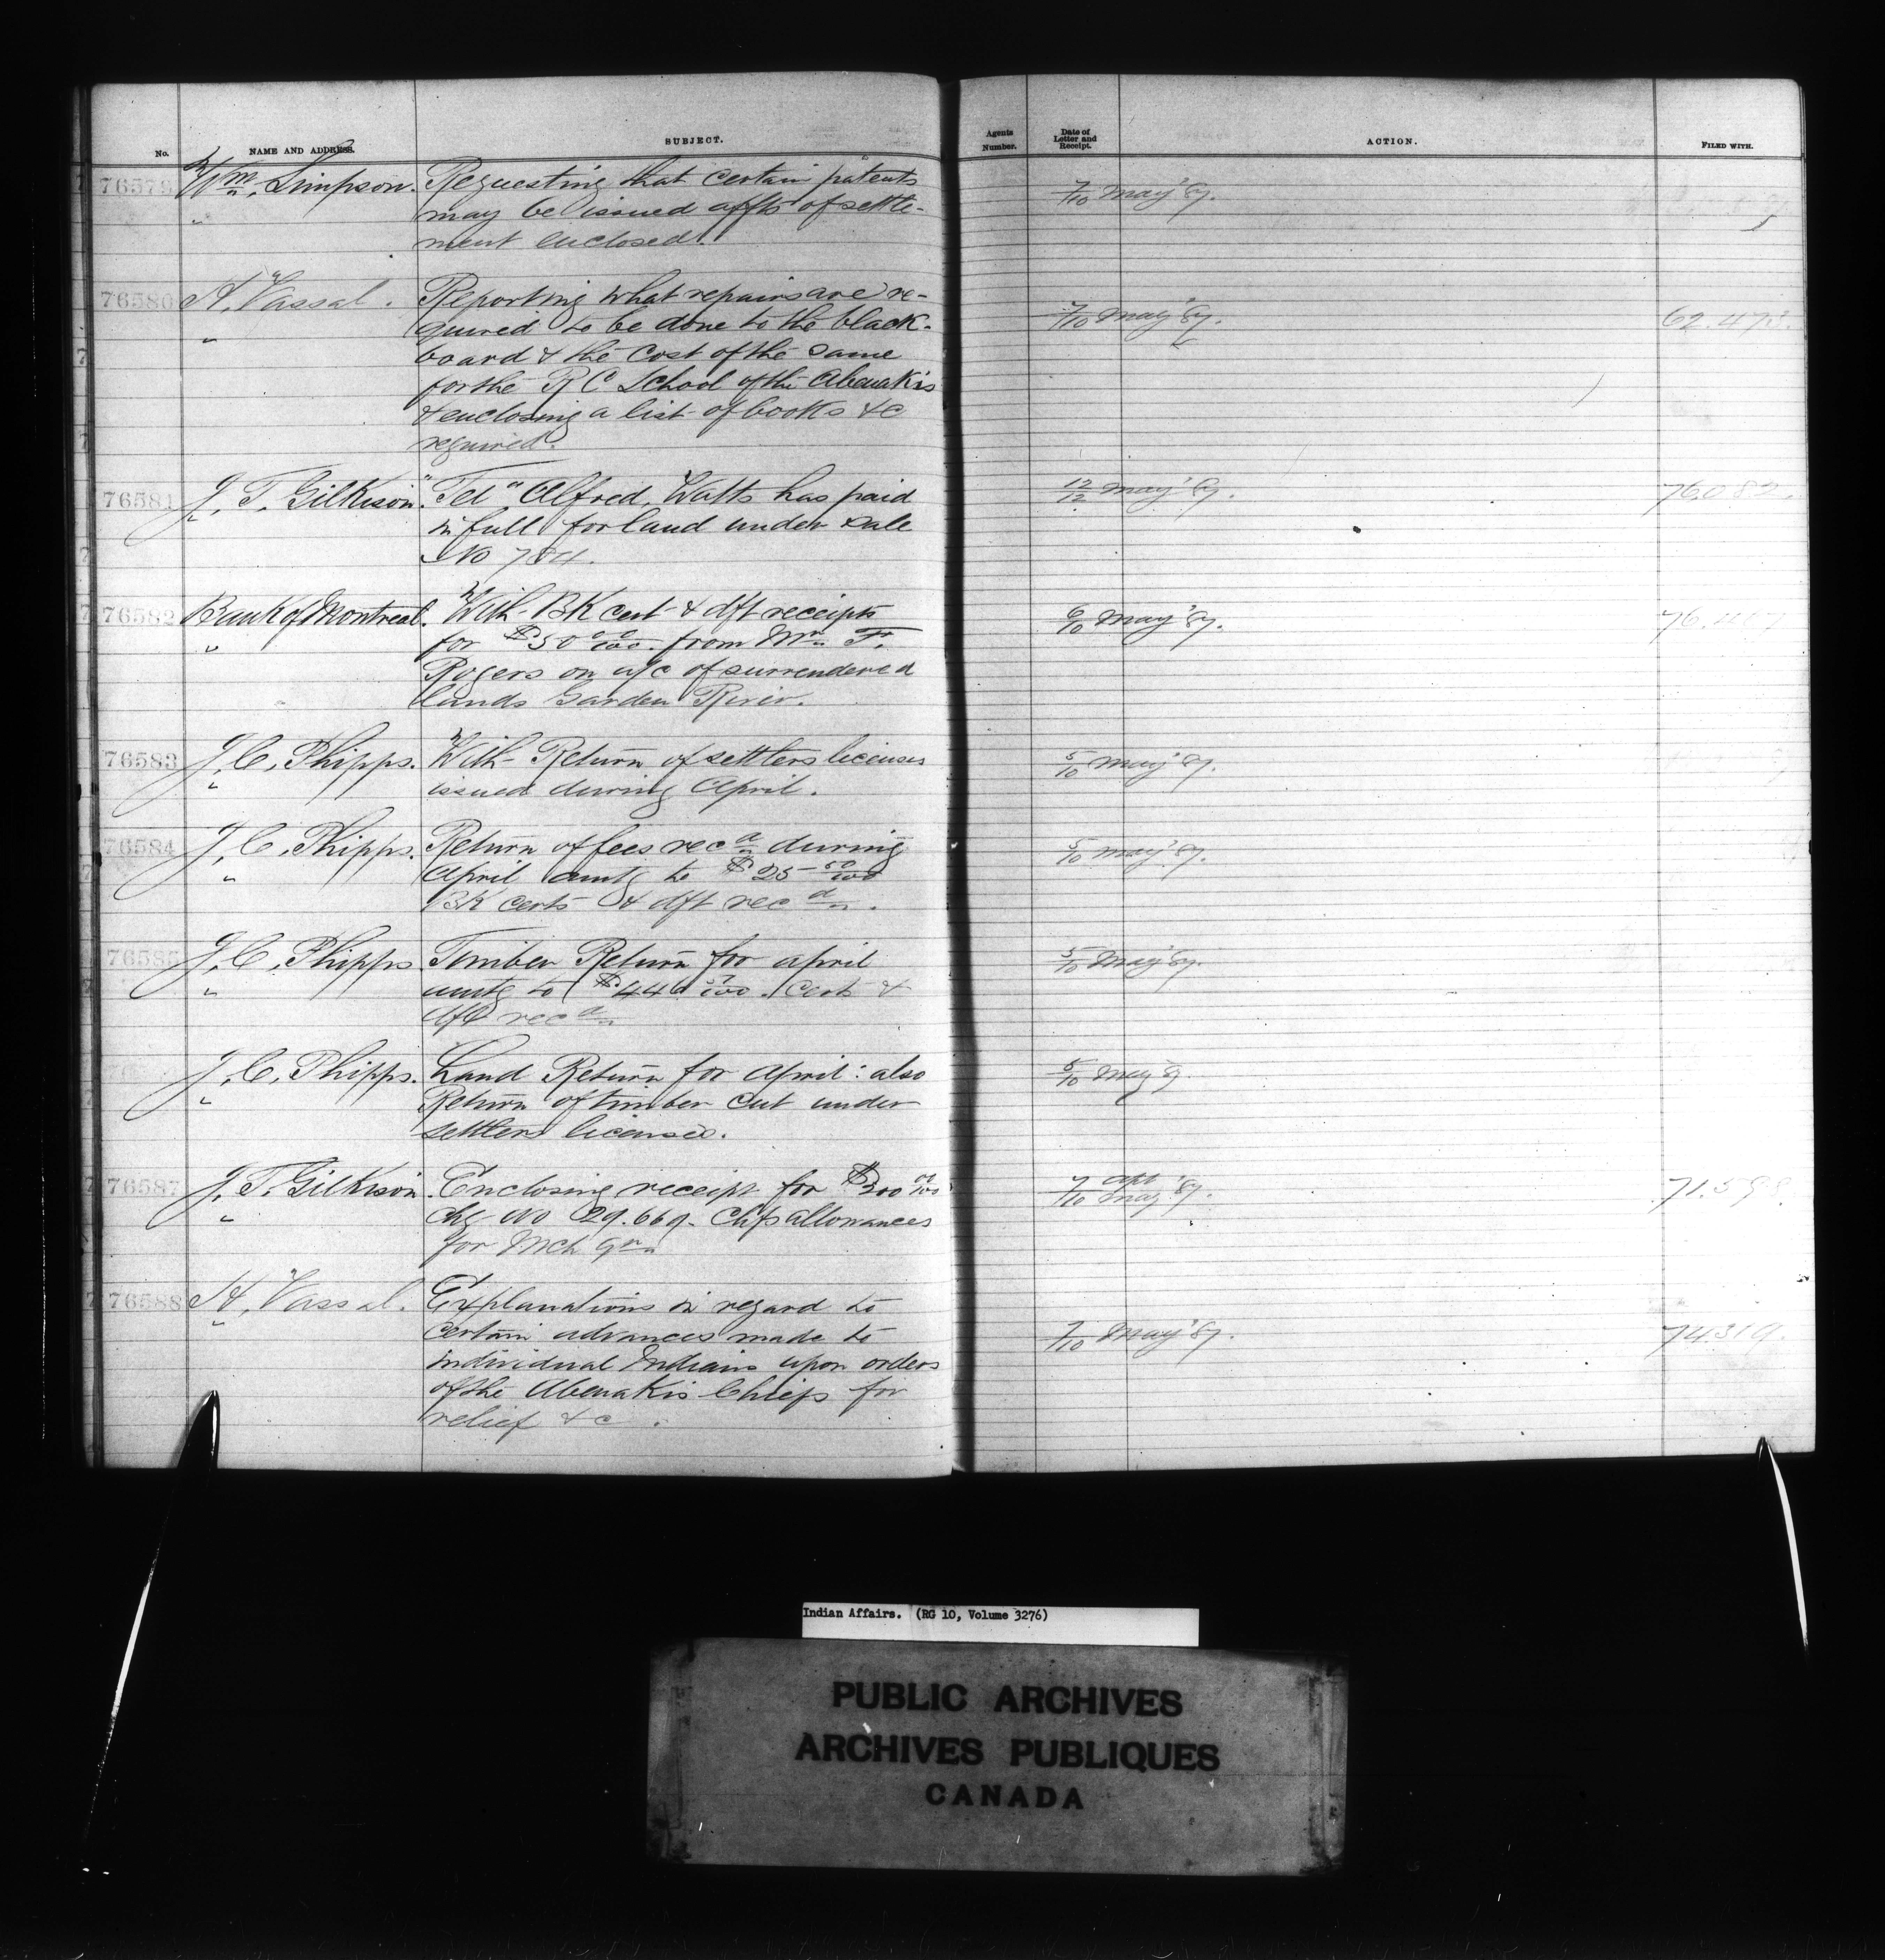 No. NAME AND ADDRESS. SUBJECT. Agents Number. Date of Letter and Receipt. ACTION. FILED WITH.
76579 Wm. Simpson. Requesting that certain patents 7/10 May '87.
" may be issued affts of settle-
ment enclosed.
76580 A. Vassal. Reporting what repairs are re-
" quired to be done to the black- 7/10 May '87. 62.473.
board & the cost of the same
for the R C School of the Abenakis
& enclosing a list of books &c
required.
76581 J. T. Gilkison. Tel " Alfred Watts has paid 12/12 May '87. 76.082.
" in full for land under sale
No 784.
76582 Bank of Montreal. With BK cert & dft receipts 6/10 May '87.
" for $50 00/100 from Wm F.
Rogers on a/c of surrendered
lands Garden River.
76583 J. C. Phipps. With Return of settlers licenses 5/10 May '87.
" issued during April.
76584 J. C. Phipps. Return of fees recd during 5/10 May '87.
" April amtg to $25 00/100
BK certs & dft recd.
76585 J. C. Phipps Timber Return for April 5/10 May '87.
" amtg to Certs &
dft recd
J. C. Phipps. Land Return for April: also 5/10 May '87
" Return of timber cut under
settlers licenses.
76587 J. T. Gilkison. Enclosing receipt for $300 00/100 7/10 May '87. 71.598.
" chq No 29.669. Chfs allowances
for Mch qr
76588 A. Vassal. Explanations in regard to
" certain advances made to 7/10 May '87. 74.319.
individual Indians upon orders
of the Abenakis Chiefs for
relief &c.
Indian Affairs. (RG 10, Volume 3276)
PUBLIC ARCHIVES
ARCHIVES PUBLIQUES
CANADA